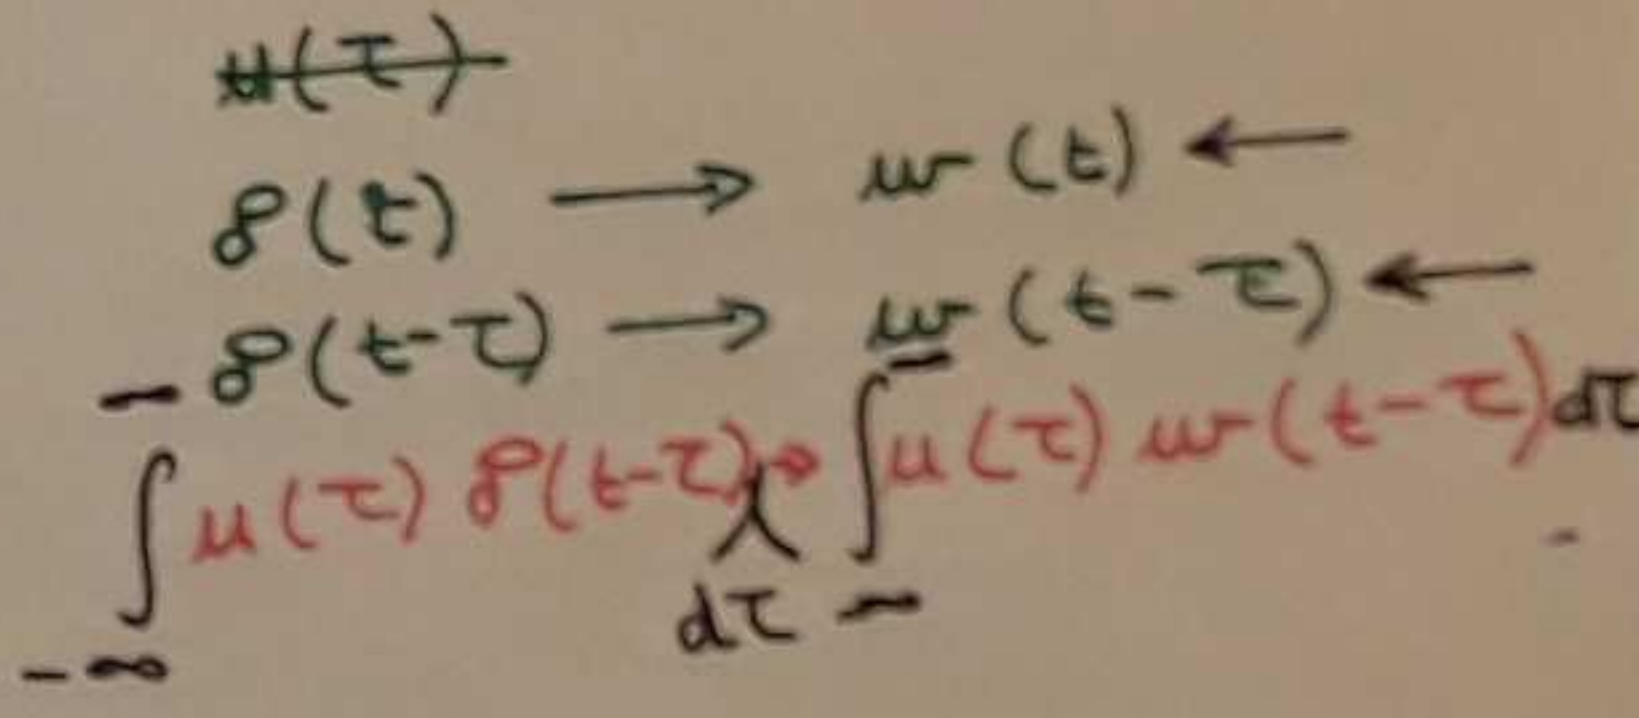 u(τ)
δ(t) → w(t) ←
δ(t-τ) → w(t-τ) ←
∫_{-∞} u(τ) δ(t-τ) dτ → ∫ u(τ) w(t-τ) dτ